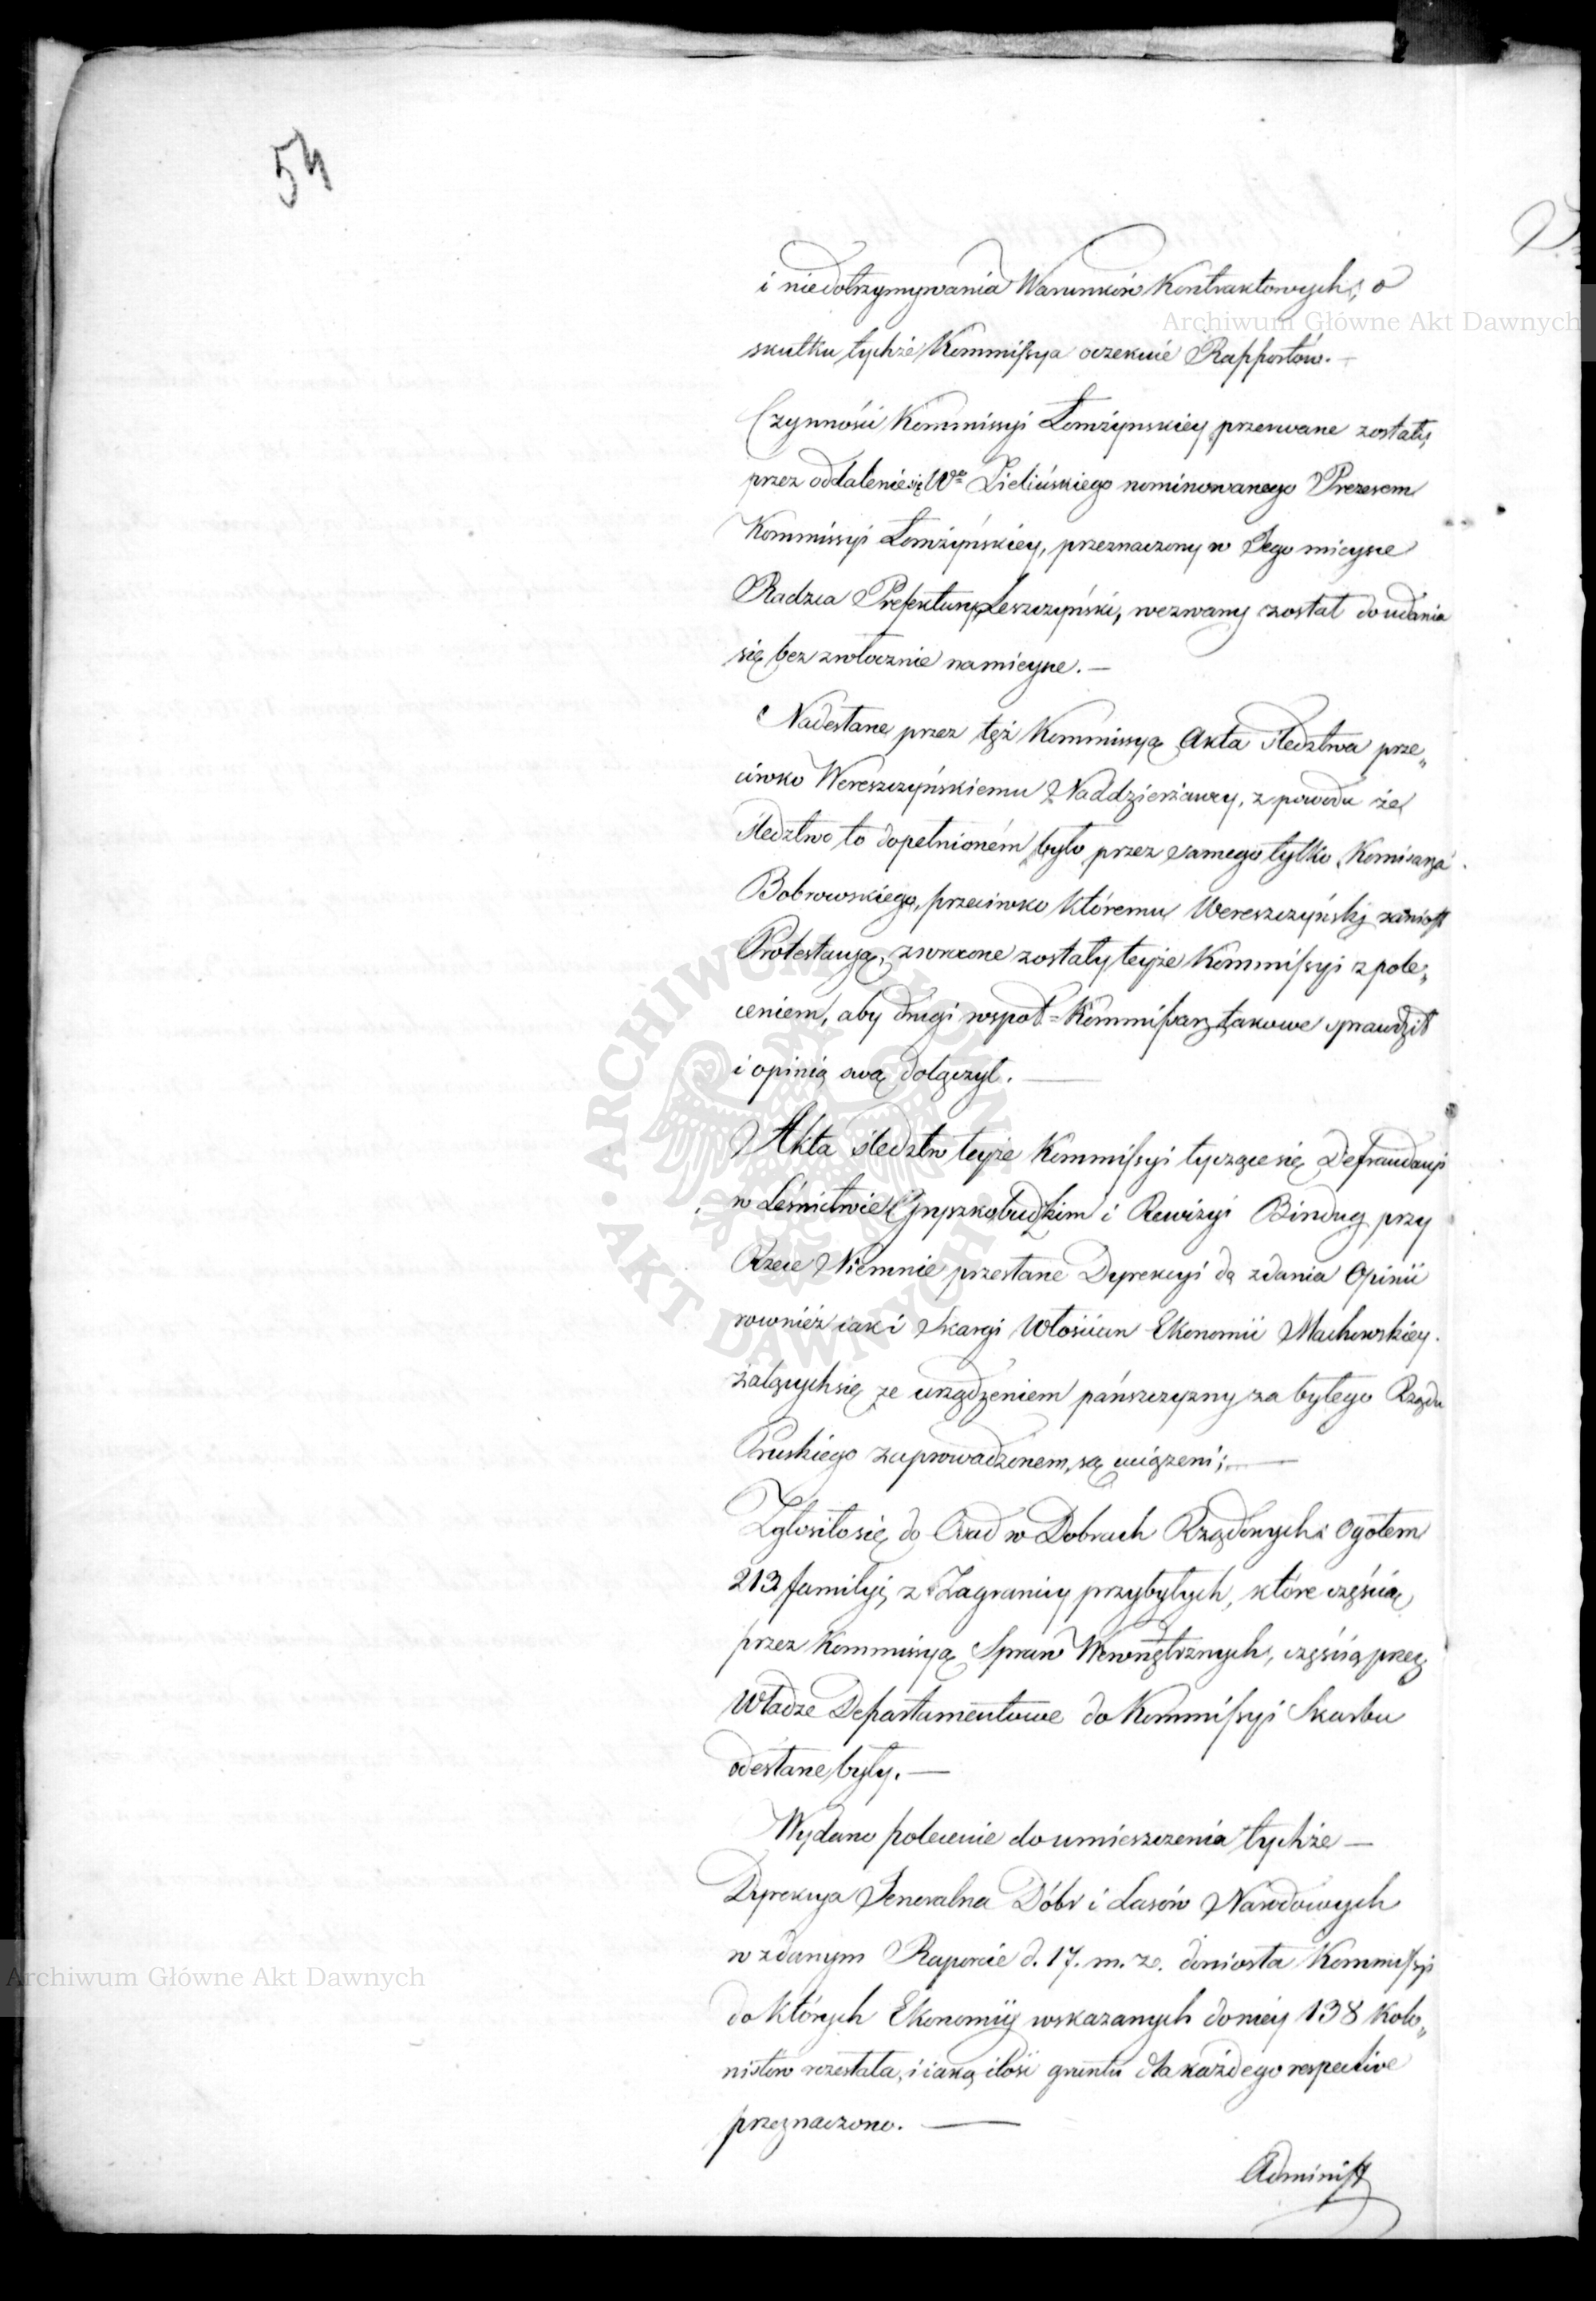 54
i niedotrzymywania Warunków Kontraktowych; o
skutku tychże Kommissya oczekuie Rapportów. —
Czynności Kommissyi Łomżynskiey przerwane zostały
przez oddalenie się Wo Zielińskiego nominowanego Prezesem
Kommissyi Łomżyńskiey, przeznaczony w Jego mieysce
Radzca Prefektury Leszczyński, wezwany został do udania
się bezzwłocznie na mieysce. —
Nadesłane przez tęż Kommissyą Akta śledztwa prze„
ciwko Wereszczyńskiemu Naddzierżawcy, z powodu że
śledztwo to dopełnioném było przez samego tylko Komisarza
Bobrowskiego, przeciwko któremu Wereszczyński zaniosł
Protestacyą, zwrócone zostały teyże Kommissyi z pole„
ceniem, aby drugi wspoł=Kommissarz takowe sprawdził
i opinią swą dołączył. —
Akta śledztw teyże Kommissyi tyczące się Defraudacyi
w Leśnictwie Gryszkobudzkim i Rewizyi Bindug przy
Rzece Niemnie przesłane Dyrekcyi do zdania Opinii
rownież iak i Skargi Włościan Ekonomii Machowskiey
żalących się że urządzeniem pańszczyzny za byłego Rządu
Pruskiego zaprowadzonem, są uciążeni; —
Zgłosiło się do Osad w Dobrach Rządowych ogółem
213 familyi z Zagranicy przybyłych, które częścią
przez Kommissyą Spraw Wewnętrznych, częścią przez
Władze Departamentowe do Kommissyi Skarbu
odesłane były. —
Wydano polecenie do umieszczenia tychże —
Dyrekcya Jeneralna Dóbr i Lasów Narodowych
w zdanym Raporcie d. 17. m. z. doniosła Kommissyi
do których Ekonomiy wskazanych do niey 138 Kolo„
nistów rozesłała, i iaką ilość gruntu dla każdego respective
przeznaczono. —
Administ
Archiwum Główne Akt Dawnych
Archiwum Główne Akt Dawnych
ARCHIWUM GŁÓWNE AKT DAWNYCH